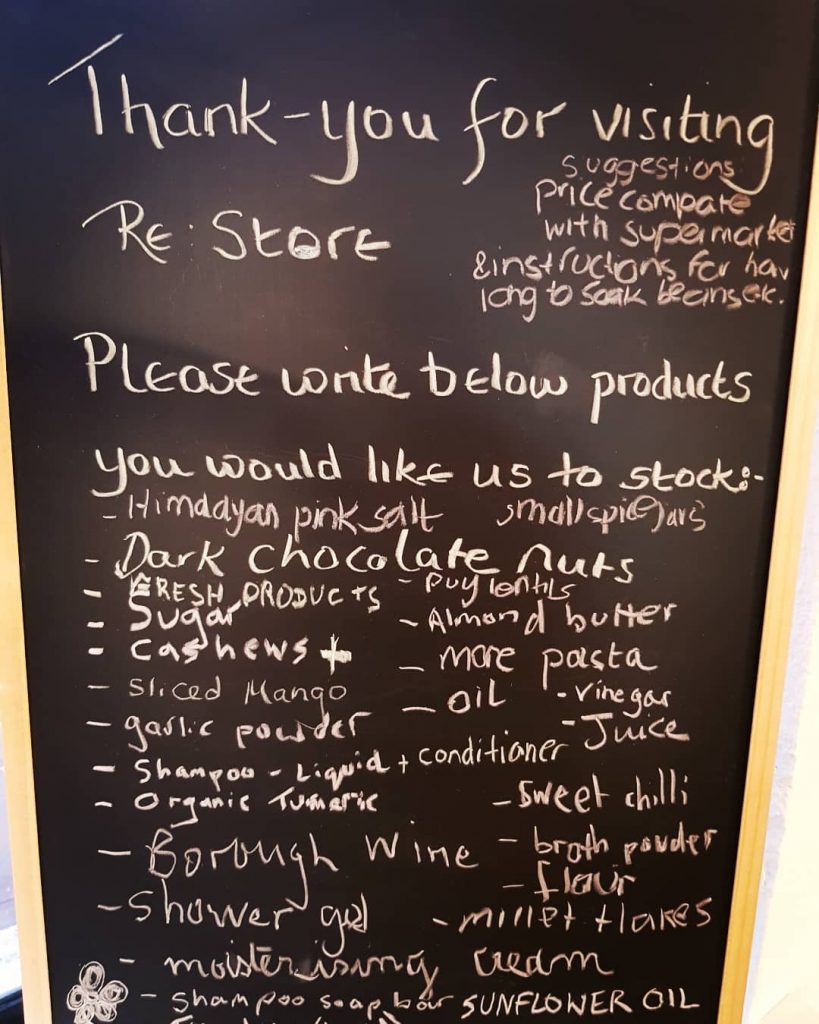 Thank-you for visiting
Re: Store
suggestions
price compare
with supermarket
& instructions for how
long to soak beans etc.
Please write below products
you would like us to stock:-
- Himalayan pink salt small spice jars
- Dark chocolate nuts
- FRESH PRODUCTS - puy lentils
- Sugar - Almond butter
- cashews + - more pasta
- Sliced Mango - OIL - vinegar
- garlic powder - Juice
- Shampoo - Liquid + conditioner
- Organic Tumeric - Sweet chilli
- Borough Wine - broth powder
- flour
- Shower gel - millet flakes
- moisterising cream
- Shampoo soap bar SUNFLOWER OIL